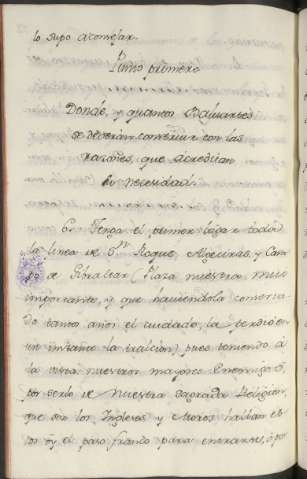 lo supo aconsejar.
Punto primero
Donde, y quantos Baluartes
se deberán construir con las
razones, que acreditan
su necesidad.
6. Tenga el primer lugar toda
la linea de Sn. Roque, Algeciras, y Cam-
po de Gibraltar (Plaza nuestra mui
importante, y que haviendola conserva-
do tantos años el cuidado, la perdió en
un instante la traición) pues teniendo á
la vista nuestros mayores Enemigos
por serlo de nuestra sagrada Religion,
que son los Ingleses, y Moros hallan es-
tos oy el paso franco para entrarse, ó por